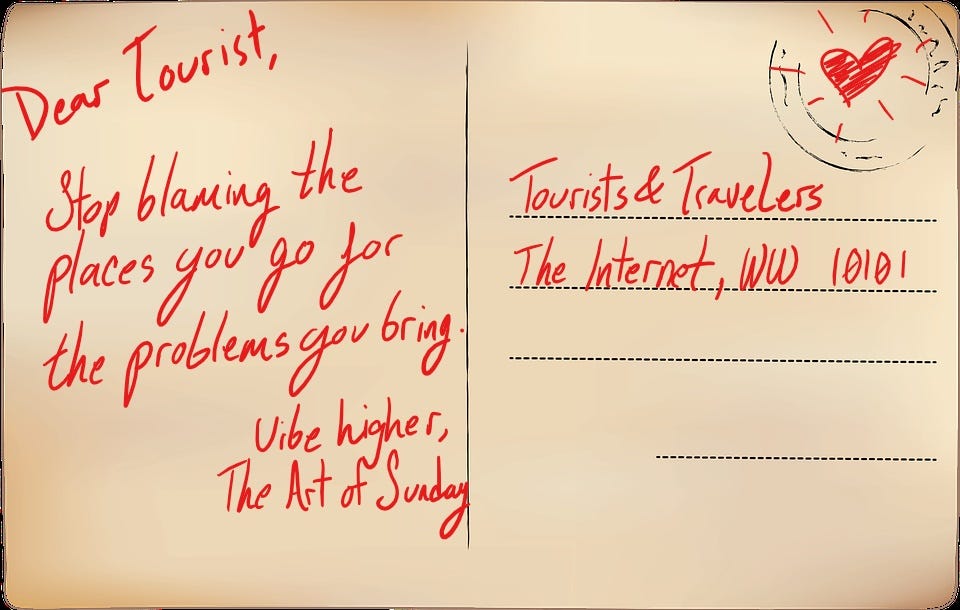 Dear Tourist,
Stop blaming the
places you go for
the problems you bring.
Vibe higher,
The Art of Sunday
Tourists & Travelers
The Internet, WW 10101